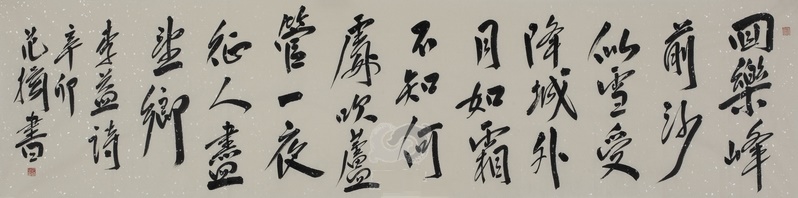 回樂峰
前沙
似雪受
降城外
月如霜
不知何
處吹蘆
管一夜
征人盡
望鄉
李益詩
辛卯
范楫書